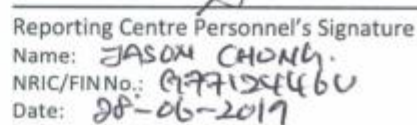 Reporting Centre Personnel's Signature
Name: JASON CHONG.
NRIC/FIN No.:
Date: 28-06-2019